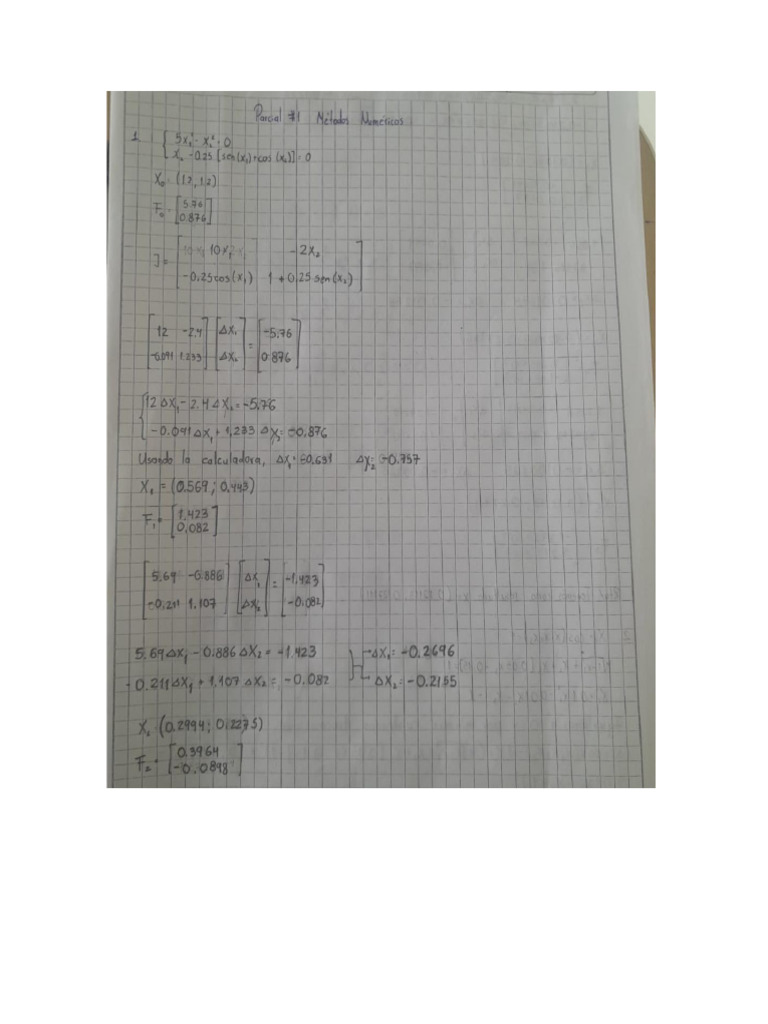 Parcial #1 Métodos Numéricos
1. { 5x₁² - x₂² = 0
x₂ - 0.25 [sen(x₁) + cos(x₂)] = 0
X₀ = (1.2, 1.2)
F₀ = [5.76
0.876]
J = [10x₁ -2x₂
-0.25cos(x₁) 1 + 0.25 sen(x₂)]
[12 -2.4 [Δx₁ = [-5.76
-0.091 1.233] Δx₂] 0.876]
{ 12 Δx₁ - 2.4 Δx₂ = -5.76
-0.091 Δx₁ + 1.233 Δx₂ = -0.876
Usando la calculadora, Δx₁ = -0.631 Δx₂ = -0.757
X₁ = (0.569; 0.443)
F₁ = [1.423
0.082]
[5.69 -0.886 [Δx₁ = [-1.423
-0.211 1.107] Δx₂] -0.082]
5.69 Δx₁ - 0.886 Δx₂ = -1.423 Δx₁ = -0.2696
-0.211 Δx₁ + 1.107 Δx₂ = -0.082 Δx₂ = -0.2155
X₂ = (0.2994; 0.2275)
F₂ = [0.3964
-0.0898]